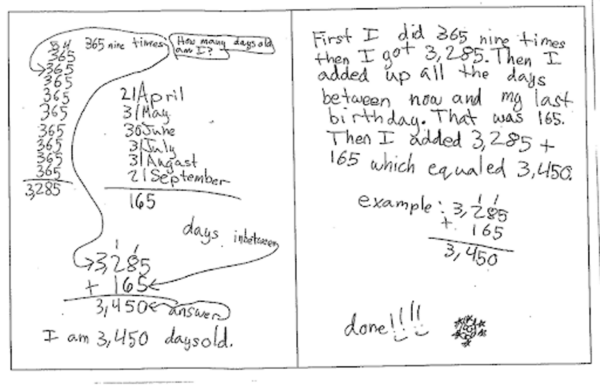 34
365
365
365
365
365
365
365
365
365
3,285
365 nine times
How many days old
am I?
21 April
31 May
30 June
31 July
31 Augast
21 September
165
days inbetween
1 1
3,285
+ 165
3,450 answer
I am 3,450 days old.
First I did 365 nine times
then I got 3,285. Then I
added up all the days
between now and my last
birthday. That was 165.
Then I added 3,285 +
165 which equaled 3,450.
1 1
example: 3,285
+ 165
3,450
done!!!!